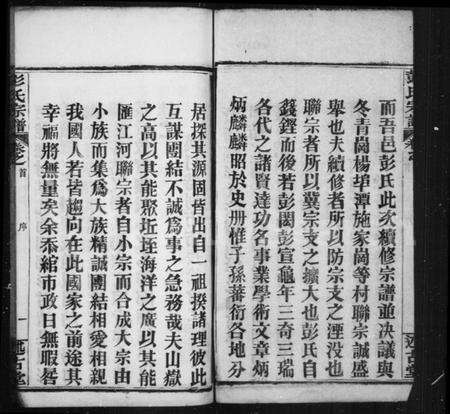 而吾邑彭氏此次續修宗譜並决議與
冬青崗楊埠潭施家崗等村聯宗誠盛
舉也夫續修者所以防宗支之湮没也
聯宗者所以冀宗支之擴大也彭氏自
籛鏗而後若彭閎彭宣龜年三奇三瑞
各代之諸賢達功名事業學術文章炳
炳麟麟昭於史册惟子孫蕃衍各地分
居探其源固皆出自一祖揆諸理彼此
互謀團結不誠為事之急務哉夫山嶽
之高以其能聚坵垤海洋之廣以其能
匯江河聯宗者自小宗而合成大宗由
小族而集為大族精誠團結相愛相親
我國人若皆趨向在此國家之前途其
幸福將無量矣余忝綰市政日無暇晷
彭氏宗譜
卷之首
序
一
述古堂